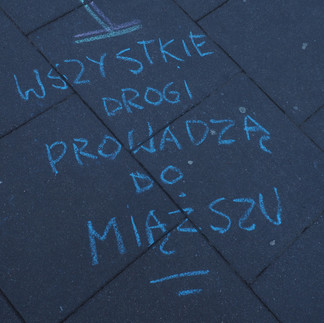 WSZYSTKIE
DROGI
PROWADZĄ
DO
MIĄŻSZU